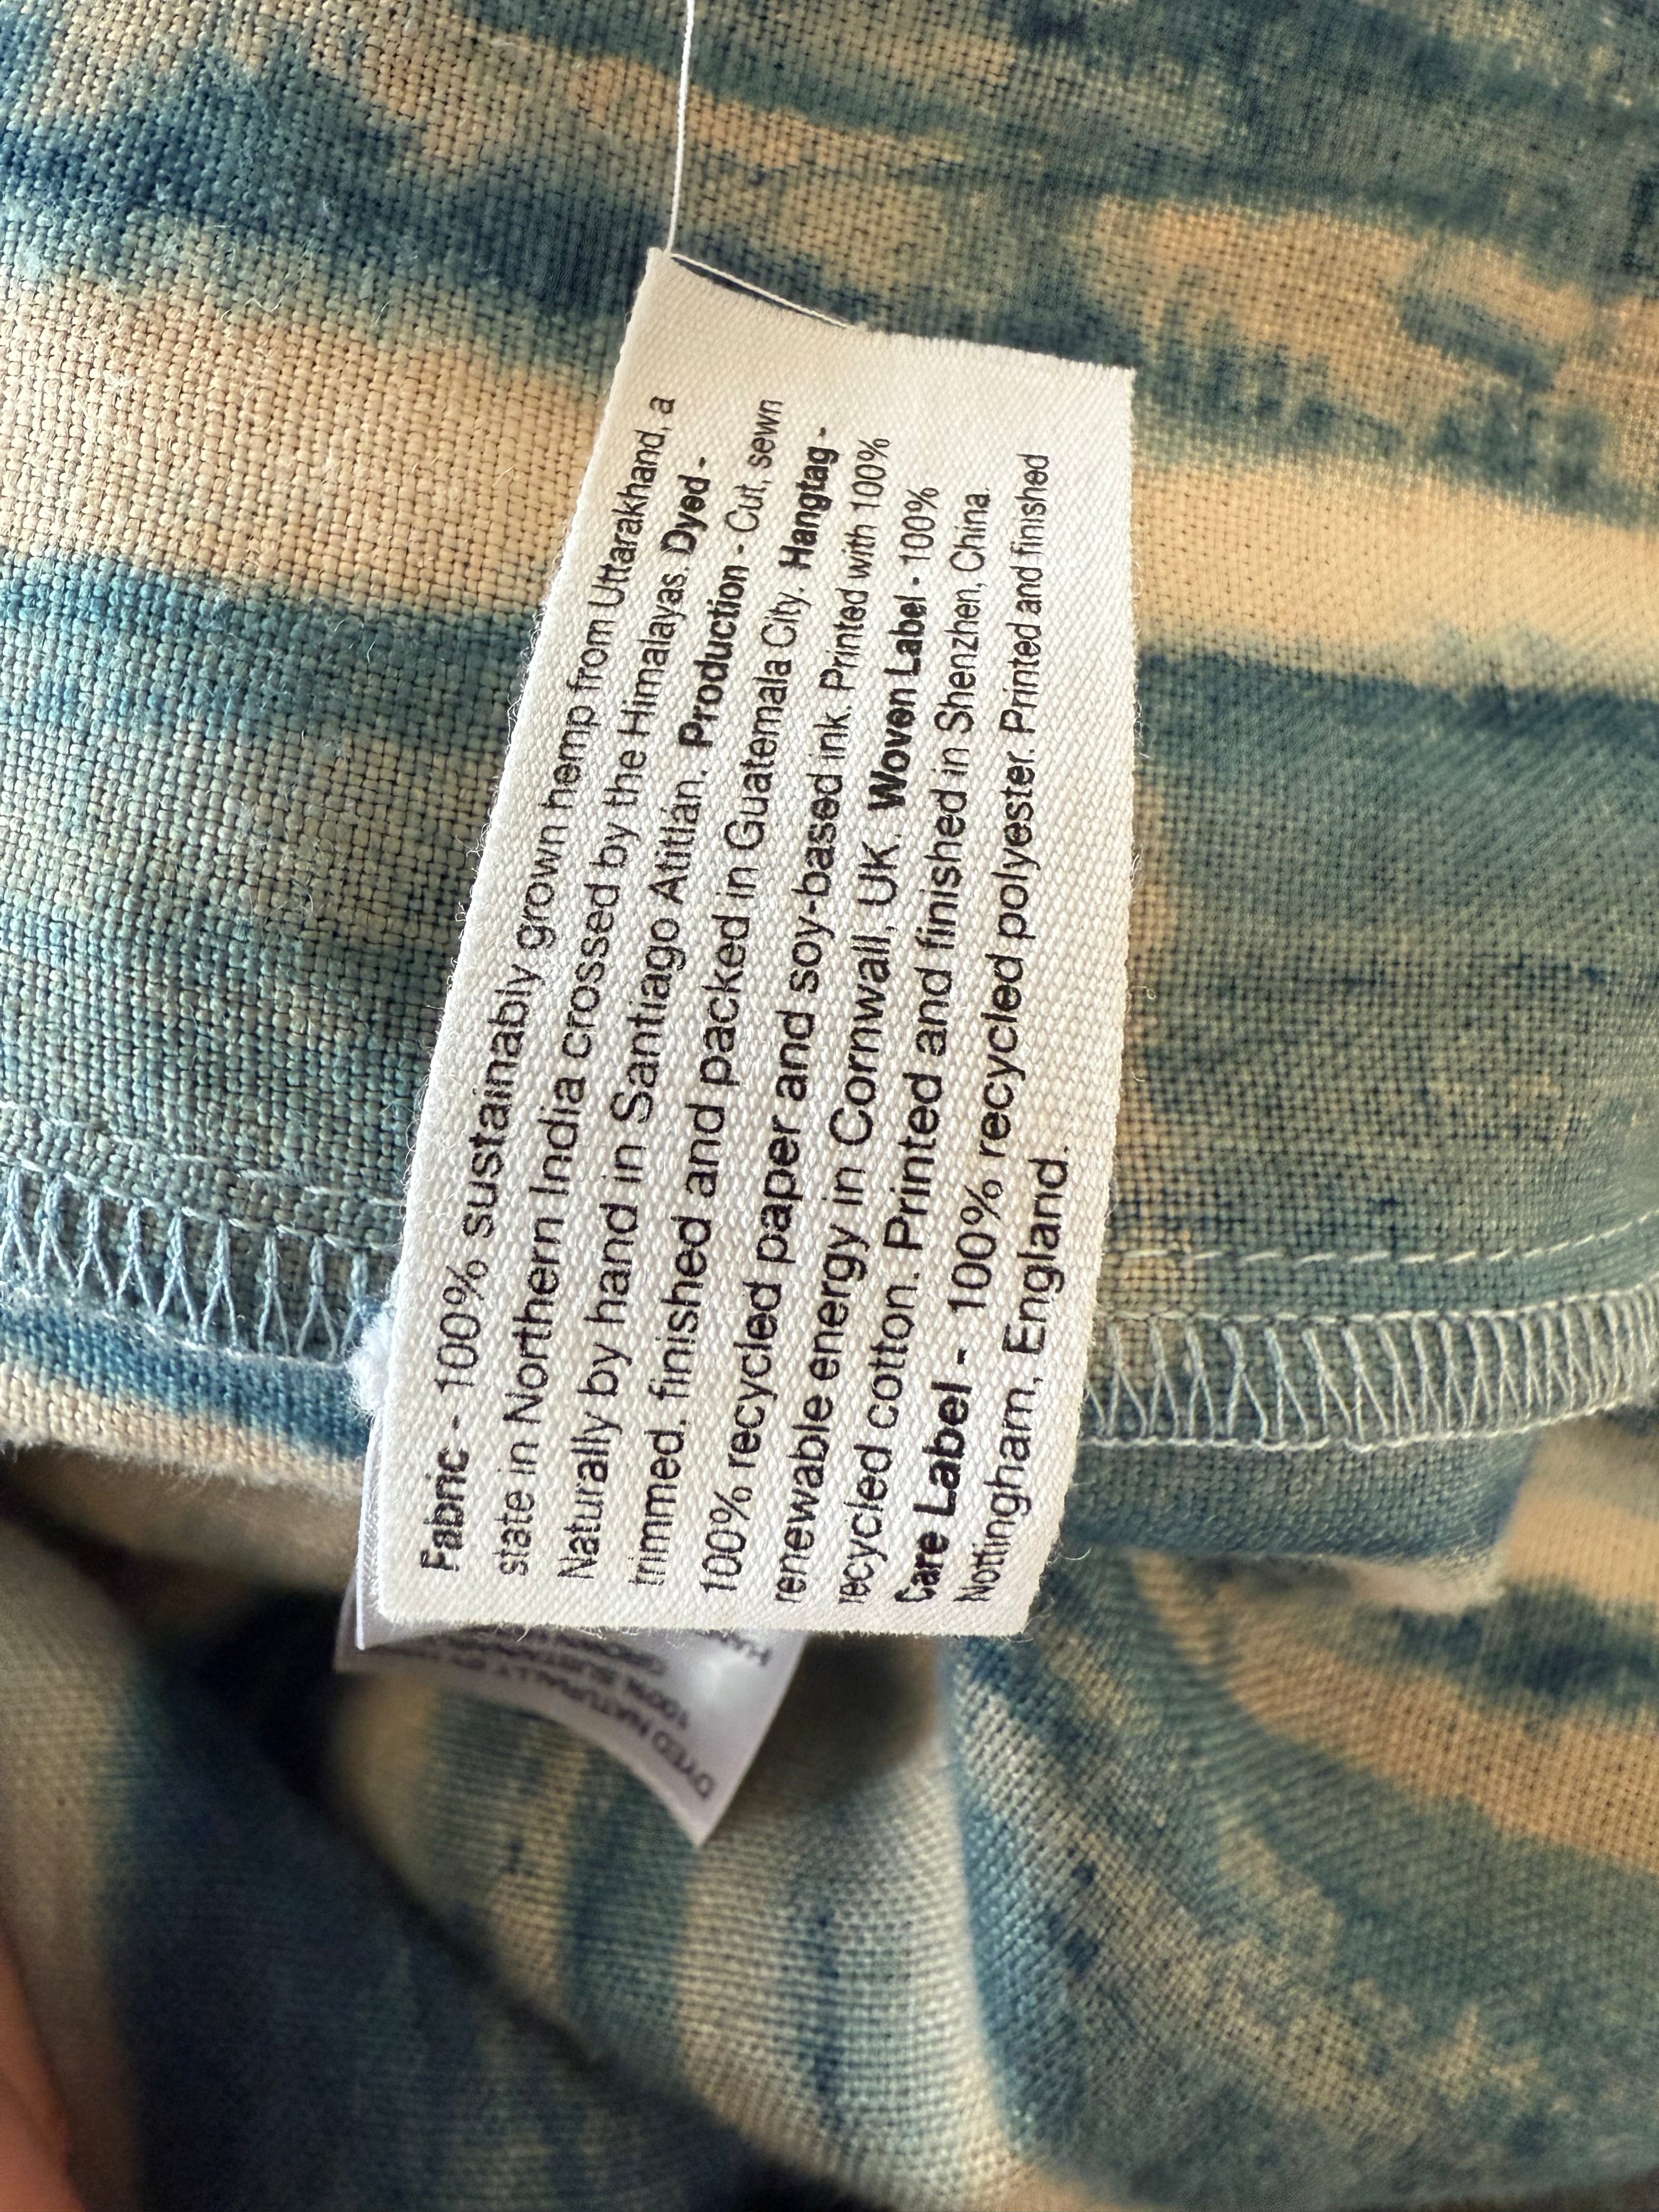 Fabric - 100% sustainably grown hemp from Uttarakhand, a
state in Northern India crossed by the Himalayas. Dyed -
Naturally by hand in Santiago Atitlán. Production - Cut, sewn
trimmed, finished and packed in Guatemala City. Hangtag -
100% recycled paper and soy-based ink. Printed with 100%
renewable energy in Cornwall, UK. Woven Label - 100%
recycled cotton. Printed and finished in Shenzhen, China.
Care Label - 100% recycled polyester. Printed and finished
Nottingham, England.
DYED NATURALLY BY
100%